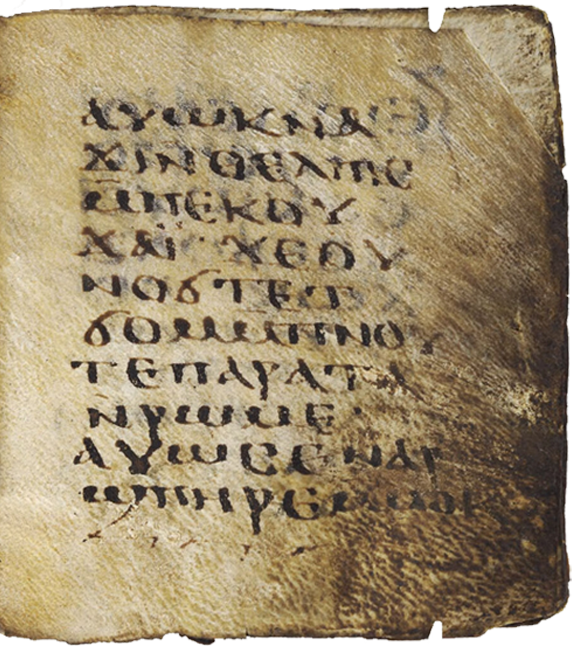 ⲁⲩⲱⲕⲛⲁ
ϫⲓⲛⲑⲉⲗⲡⲓⲥ
ⲙⲡⲉⲕⲟⲩ
ϫⲁⲓ̈ ϫⲉⲟⲩ
ⲛⲟϭⲧⲉⲧ
ϭⲟⲙⲙⲡⲛⲟⲩ
ⲧⲉⲡⲁⲣⲁⲧⲁ
ⲛⲣⲱⲙⲉ
ⲁⲩⲱⲥⲉⲛⲁⲣ
ϣⲡⲏⲣⲉⲙⲙⲟⲕ